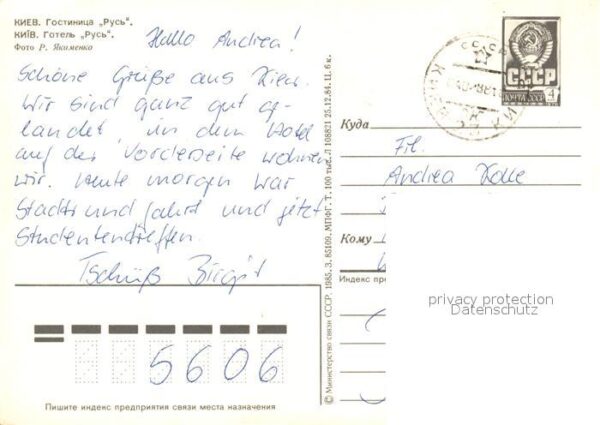 КИЕВ. Гостиница „Русь".
КИЇВ. Готель „Русь".
Фото Р. Якименко
Hallo Andrea!
Schöne Grüße aus Kiew.
Wir sind ganz gut ge-
landet, in dem Hotel
auf der Vorderseite wohnen
wir. Heute morgen war
Stadtrundfahrt und jetzt
Studententreffen.
Tschüß Birgit
5606
Пишите индекс предприятия связи места назначения
© Министерство связи СССР. 1985. З. 85109. МПФГ. Т. 100 тыс. Л 108821 25.12.84. Ц. 6 к.
СССР
ПОЧТА СССР 4
Куда
Frl.
Andrea
Кому
Индекс пре
privacy protection
Datenschutz